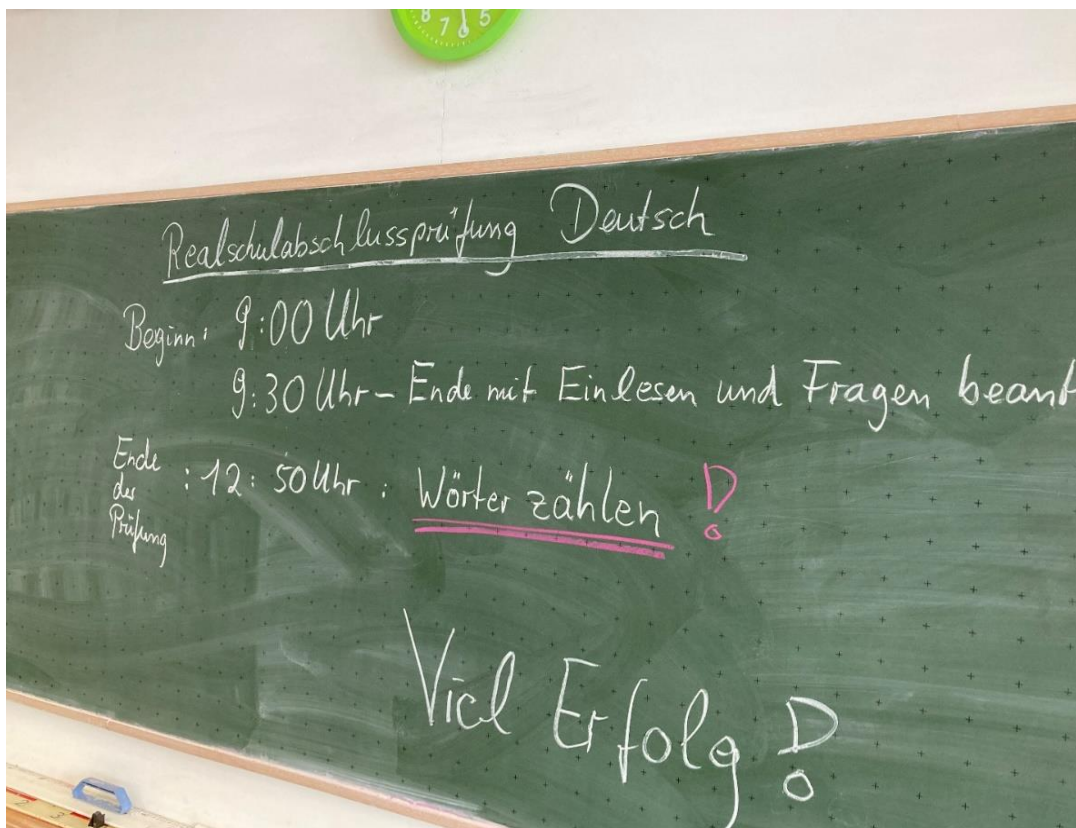 8 7 6 5
Realschulabschlussprüfung Deutsch
Beginn: 9:00 Uhr
9:30 Uhr – Ende mit Einlesen und Fragen beant
Ende der Prüfung : 12:50 Uhr : Wörter zählen !
Viel Erfolg !